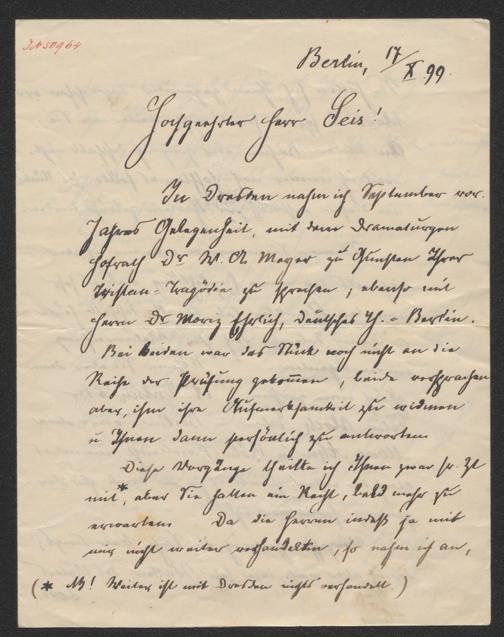 JN 50964
Berlin, 17/X 99.
Hochgeehrter Herr Seis!
In Dresden nahm ich September vor.
Jahres Gelegenheit, mit dem Dramaturgen
Hofrath Dr W. A. Meyer zu Gunsten Ihrer
Tristan-Tragödie zu sprechen; ebenso mit
Herrn Dr Moriz Ehrlich, Deutsches Th. - Berlin.
Bei beiden war das Stück noch nicht an die
Reihe der Prüfung gekommen, beide versprachen
aber, ihm ihre Aufmerksamkeit zu widmen
u Ihnen dann persönlich zu antworten.
Diese Vorgänge theilte ich Ihnen zwar sr. Zt
mit*, aber Sie hatten ein Recht, bald mehr zu
erwarten. Da die Herren indeß ja mit
mir nicht weiter verhandelten, so nahm ich an,
(* NB! Weiter ist mit Dresden nichts verhandelt.)